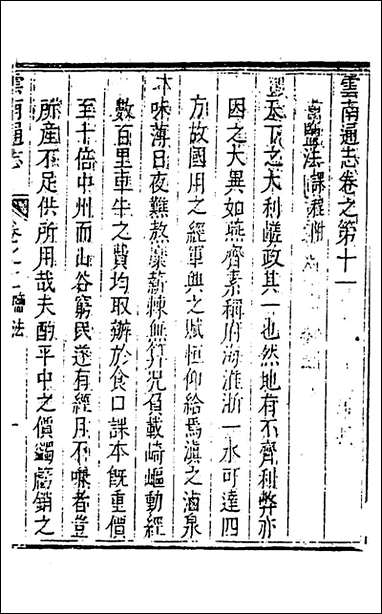 雲南通志卷之第十一
鹽法課程附
聖天下之大利鹺政其一也然地有不齊利弊亦
因之大異如燕齊素稱府海淮浙一水可達四
方故國用之經軍興之賦恒仰給焉滇之滷泉
味薄日夜難熬藥薪煉無算况負載崎嶇動經
數百里車牛之費均取辦於食口課本既重價
至十倍中州而山谷窮民遂有經月不嚥者豈
所產不足供所用哉夫酌平中之價蠲舊銷之
雲南通志 卷之十一鹽法 一